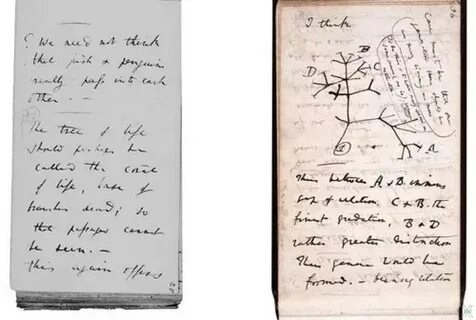 ? We need not think
that fish & penguins
really pass into each
other. —
The tree of life
should perhaps be
called the coral
of life, base of
branches dead; so
that passages cannot
be seen. —
this again offers
25
36
I think
Case must be that one
generation then should be
as many living as
now
B
D
C
A
1
Thus between A & B. immense
gap of relation. C & B. the
finest gradation, B & D
rather greater distinction
Thus genera would be
formed. — bearing relation